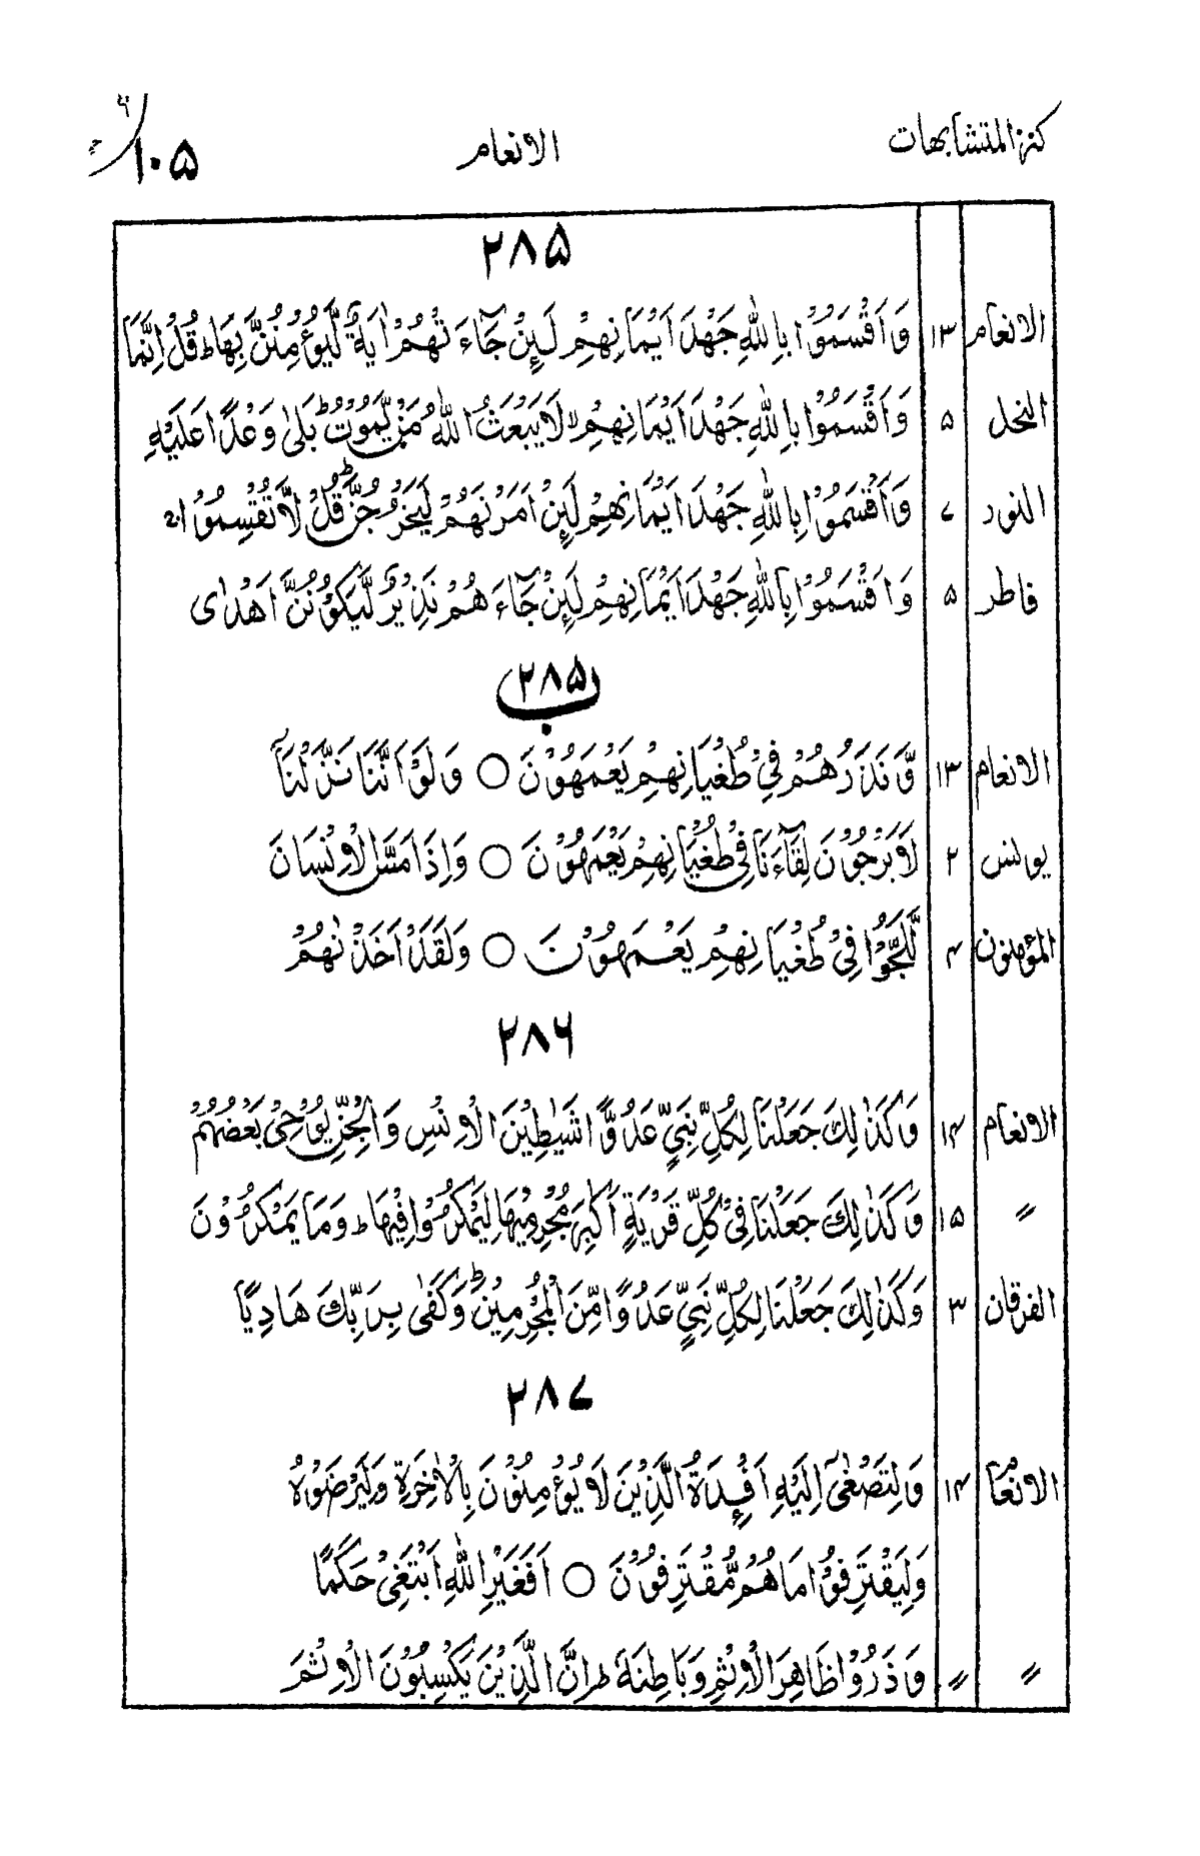 كنز المتشابهات الانعام ۱۰۵
۲۸۵
الانعام ۱۳ وَاَقْسَمُوْا بِاللّٰهِ جَهْدَ اَيْمَانِهِمْ لَئِنْ جَآءَتْهُمْ اٰيَةٌ لَّيُؤْمِنُنَّ بِهَا ط قُلْ اِنَّمَا
النحل ۵ وَاَقْسَمُوْا بِاللّٰهِ جَهْدَ اَيْمَانِهِمْ لا لَا يَبْعَثُ اللّٰهُ مَنْ يَّمُوْتُ ط بَلٰى وَعْدًا عَلَيْهِ
النور ۷ وَاَقْسَمُوْا بِاللّٰهِ جَهْدَ اَيْمَانِهِمْ لَئِنْ اَمَرْتَهُمْ لَيَخْرُجُنَّ ط قُلْ لَّا تُقْسِمُوْا ج
فاطر ۵ وَاَقْسَمُوْا بِاللّٰهِ جَهْدَ اَيْمَانِهِمْ لَئِنْ جَآءَهُمْ نَذِيْرٌ لَّيَكُوْنُنَّ اَهْدٰى
۲۸۵ ب
الانعام ۱۳ وَّنَذَرُهُمْ فِيْ طُغْيَانِهِمْ يَعْمَهُوْنَ ○ وَلَوْ اَنَّنَا نَزَّلْنَآ
يونس ۲ لَا يَرْجُوْنَ لِقَآءَنَا فِيْ طُغْيَانِهِمْ يَعْمَهُوْنَ ○ وَاِذَا مَسَّ الْاِنْسَانَ
المؤمنون ۴ لَّلَجُّوْا فِيْ طُغْيَانِهِمْ يَعْمَهُوْنَ ○ وَلَقَدْ اَخَذْنٰهُمْ
۲۸۶
الانعام ۱۴ وَكَذٰلِكَ جَعَلْنَا لِكُلِّ نَبِيٍّ عَدُوًّا شَيٰطِيْنَ الْاِنْسِ وَالْجِنِّ يُوْحِيْ بَعْضُهُمْ
〃 ۱۵ وَكَذٰلِكَ جَعَلْنَا فِيْ كُلِّ قَرْيَةٍ اَكٰبِرَ مُجْرِمِيْهَا لِيَمْكُرُوْا فِيْهَا ط وَمَا يَمْكُرُوْنَ
الفرقان ۳ وَكَذٰلِكَ جَعَلْنَا لِكُلِّ نَبِيٍّ عَدُوًّا مِّنَ الْمُجْرِمِيْنَ ط وَكَفٰى بِرَبِّكَ هَادِيًا
۲۸۷
الانعام ۱۴ وَلِتَصْغٰٓى اِلَيْهِ اَفْـِٕدَةُ الَّذِيْنَ لَا يُؤْمِنُوْنَ بِالْاٰخِرَةِ وَلِيَرْضَوْهُ
وَلِيَقْتَرِفُوْا مَا هُمْ مُّقْتَرِفُوْنَ ○ اَفَغَيْرَ اللّٰهِ اَبْتَغِيْ حَكَمًا
〃 〃 وَذَرُوْا ظَاهِرَ الْاِثْمِ وَبَاطِنَهٗ ط اِنَّ الَّذِيْنَ يَكْسِبُوْنَ الْاِثْمَ